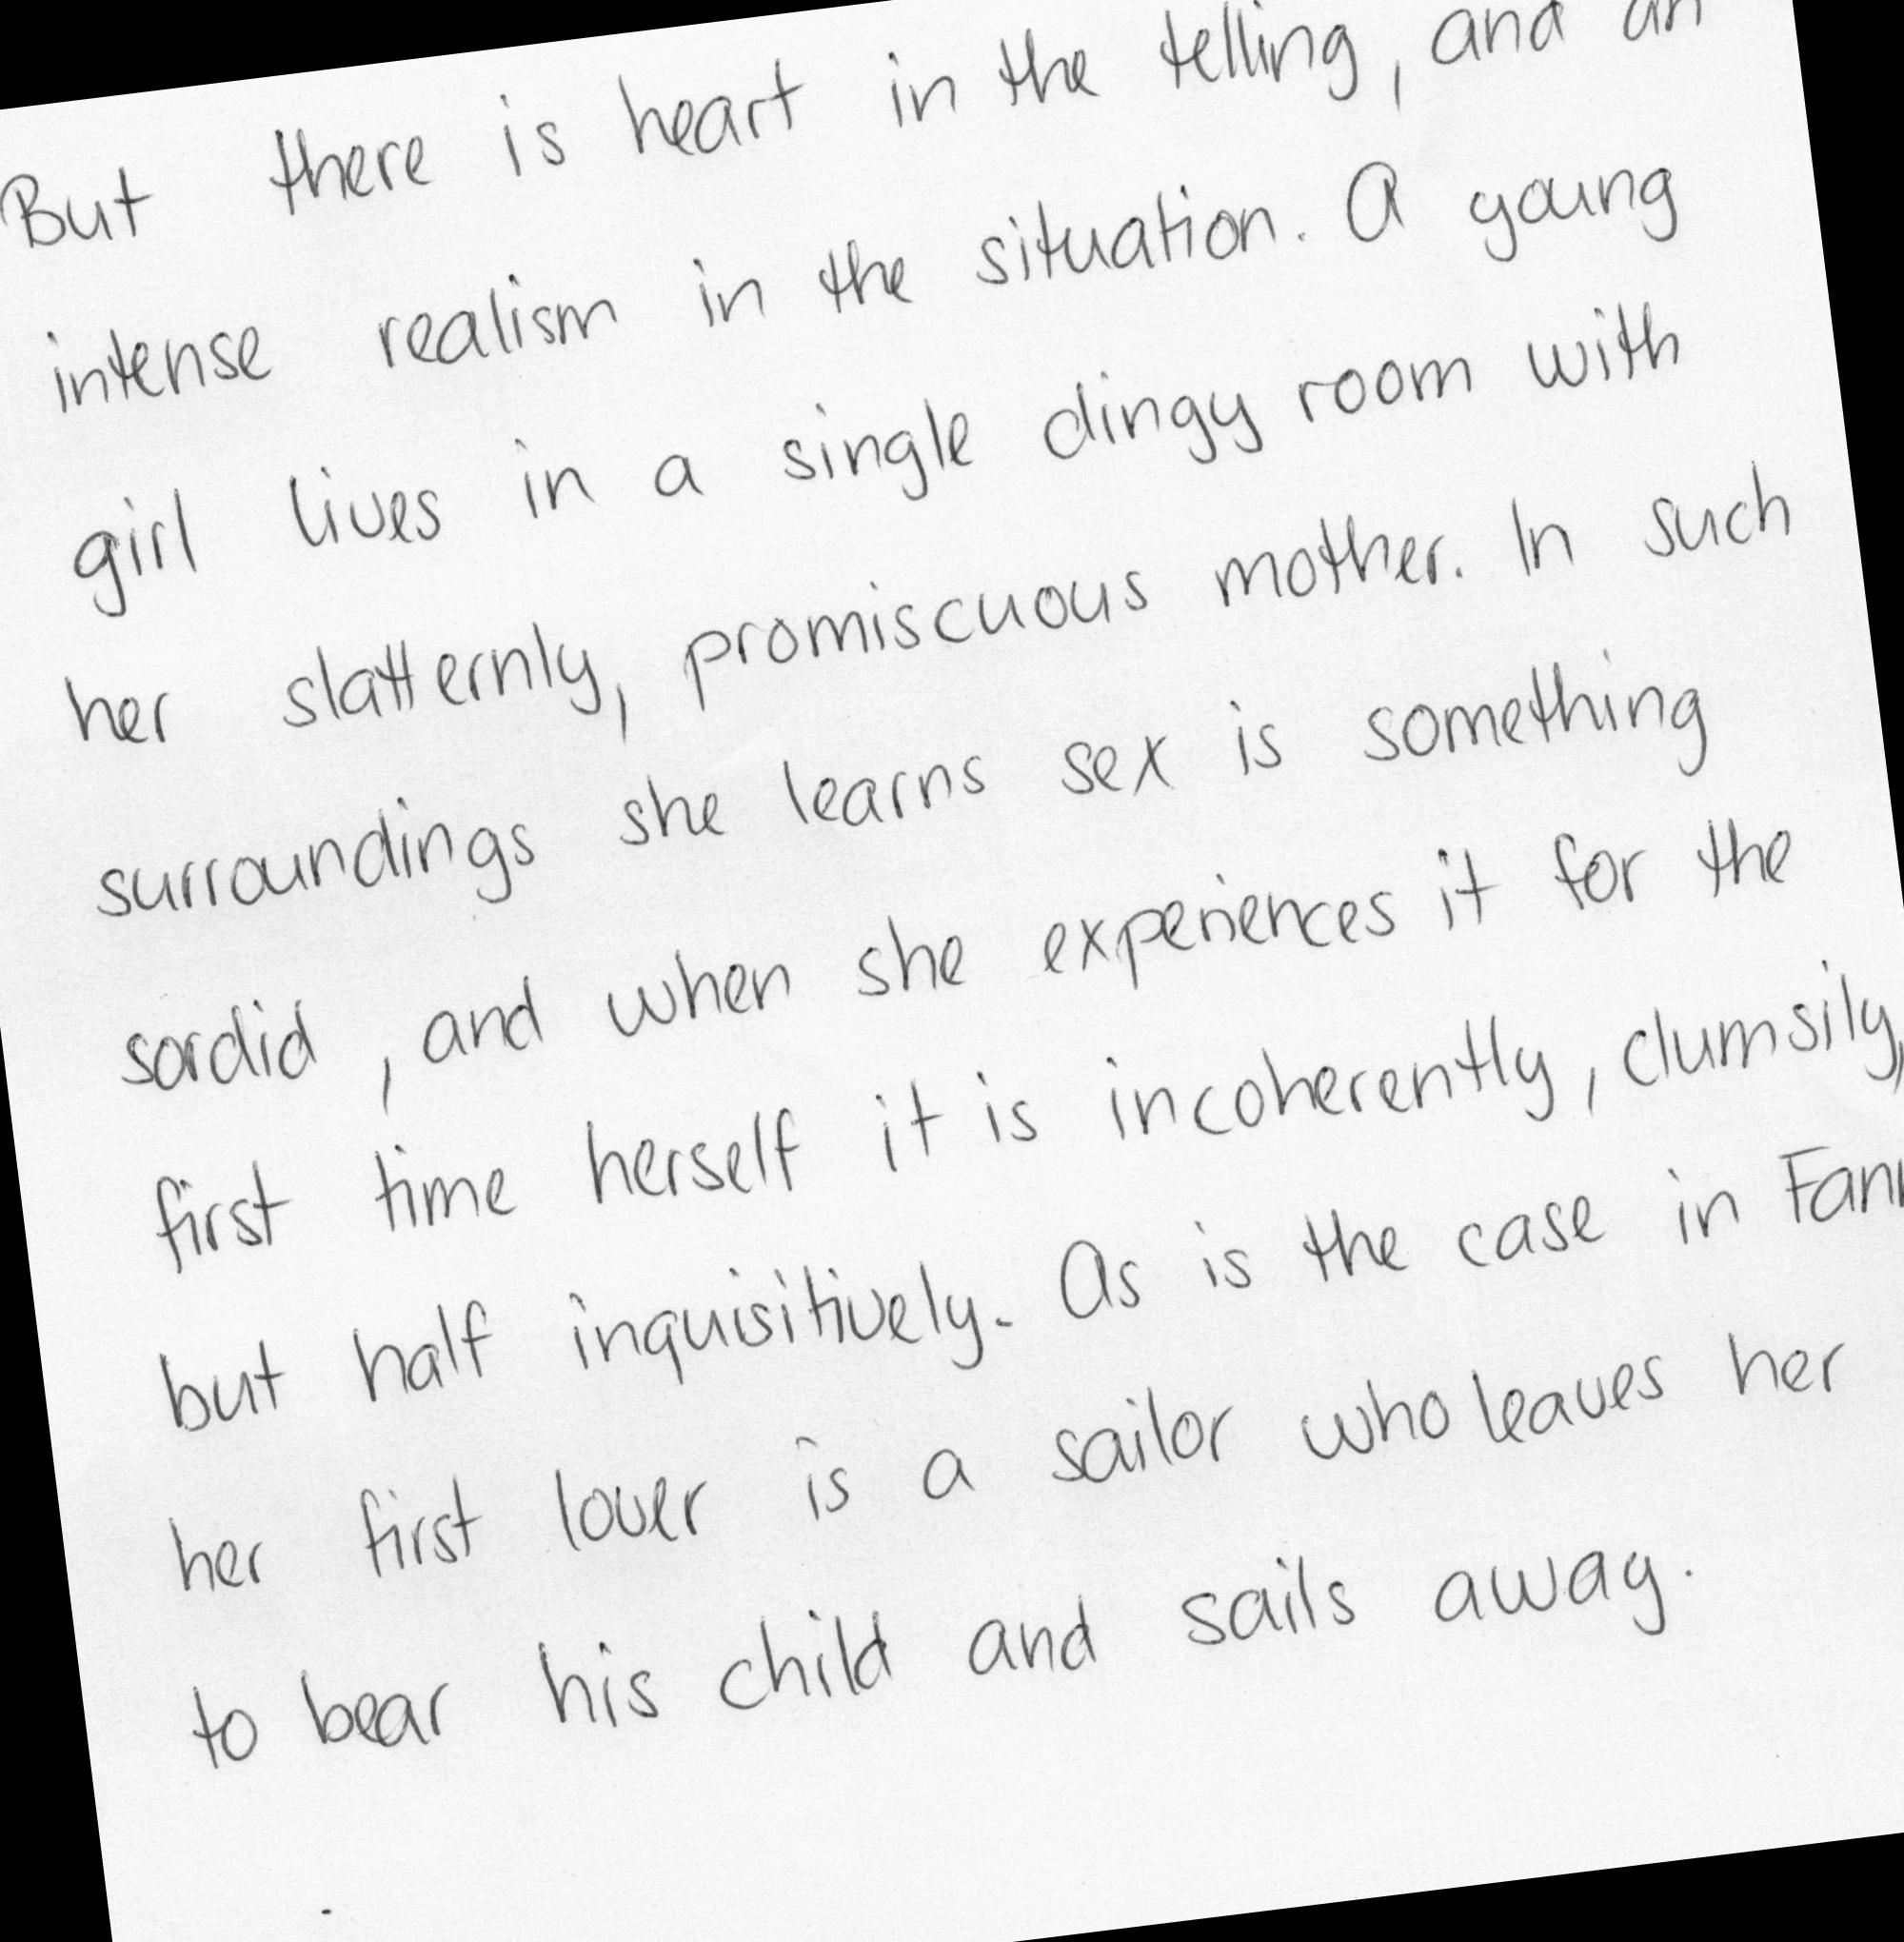 But there is heart in the telling, and an
intense realism in the situation. A young
girl lives in a single dingy room with
her slatternly, promiscuous mother. In such
surroundings she learns sex is something
sordid, and when she experiences it for the
first time herself it is incoherently, clumsily,
but half inquisitively. As is the case in
her first lover is a sailor who leaves her
to bear his child and sails away.